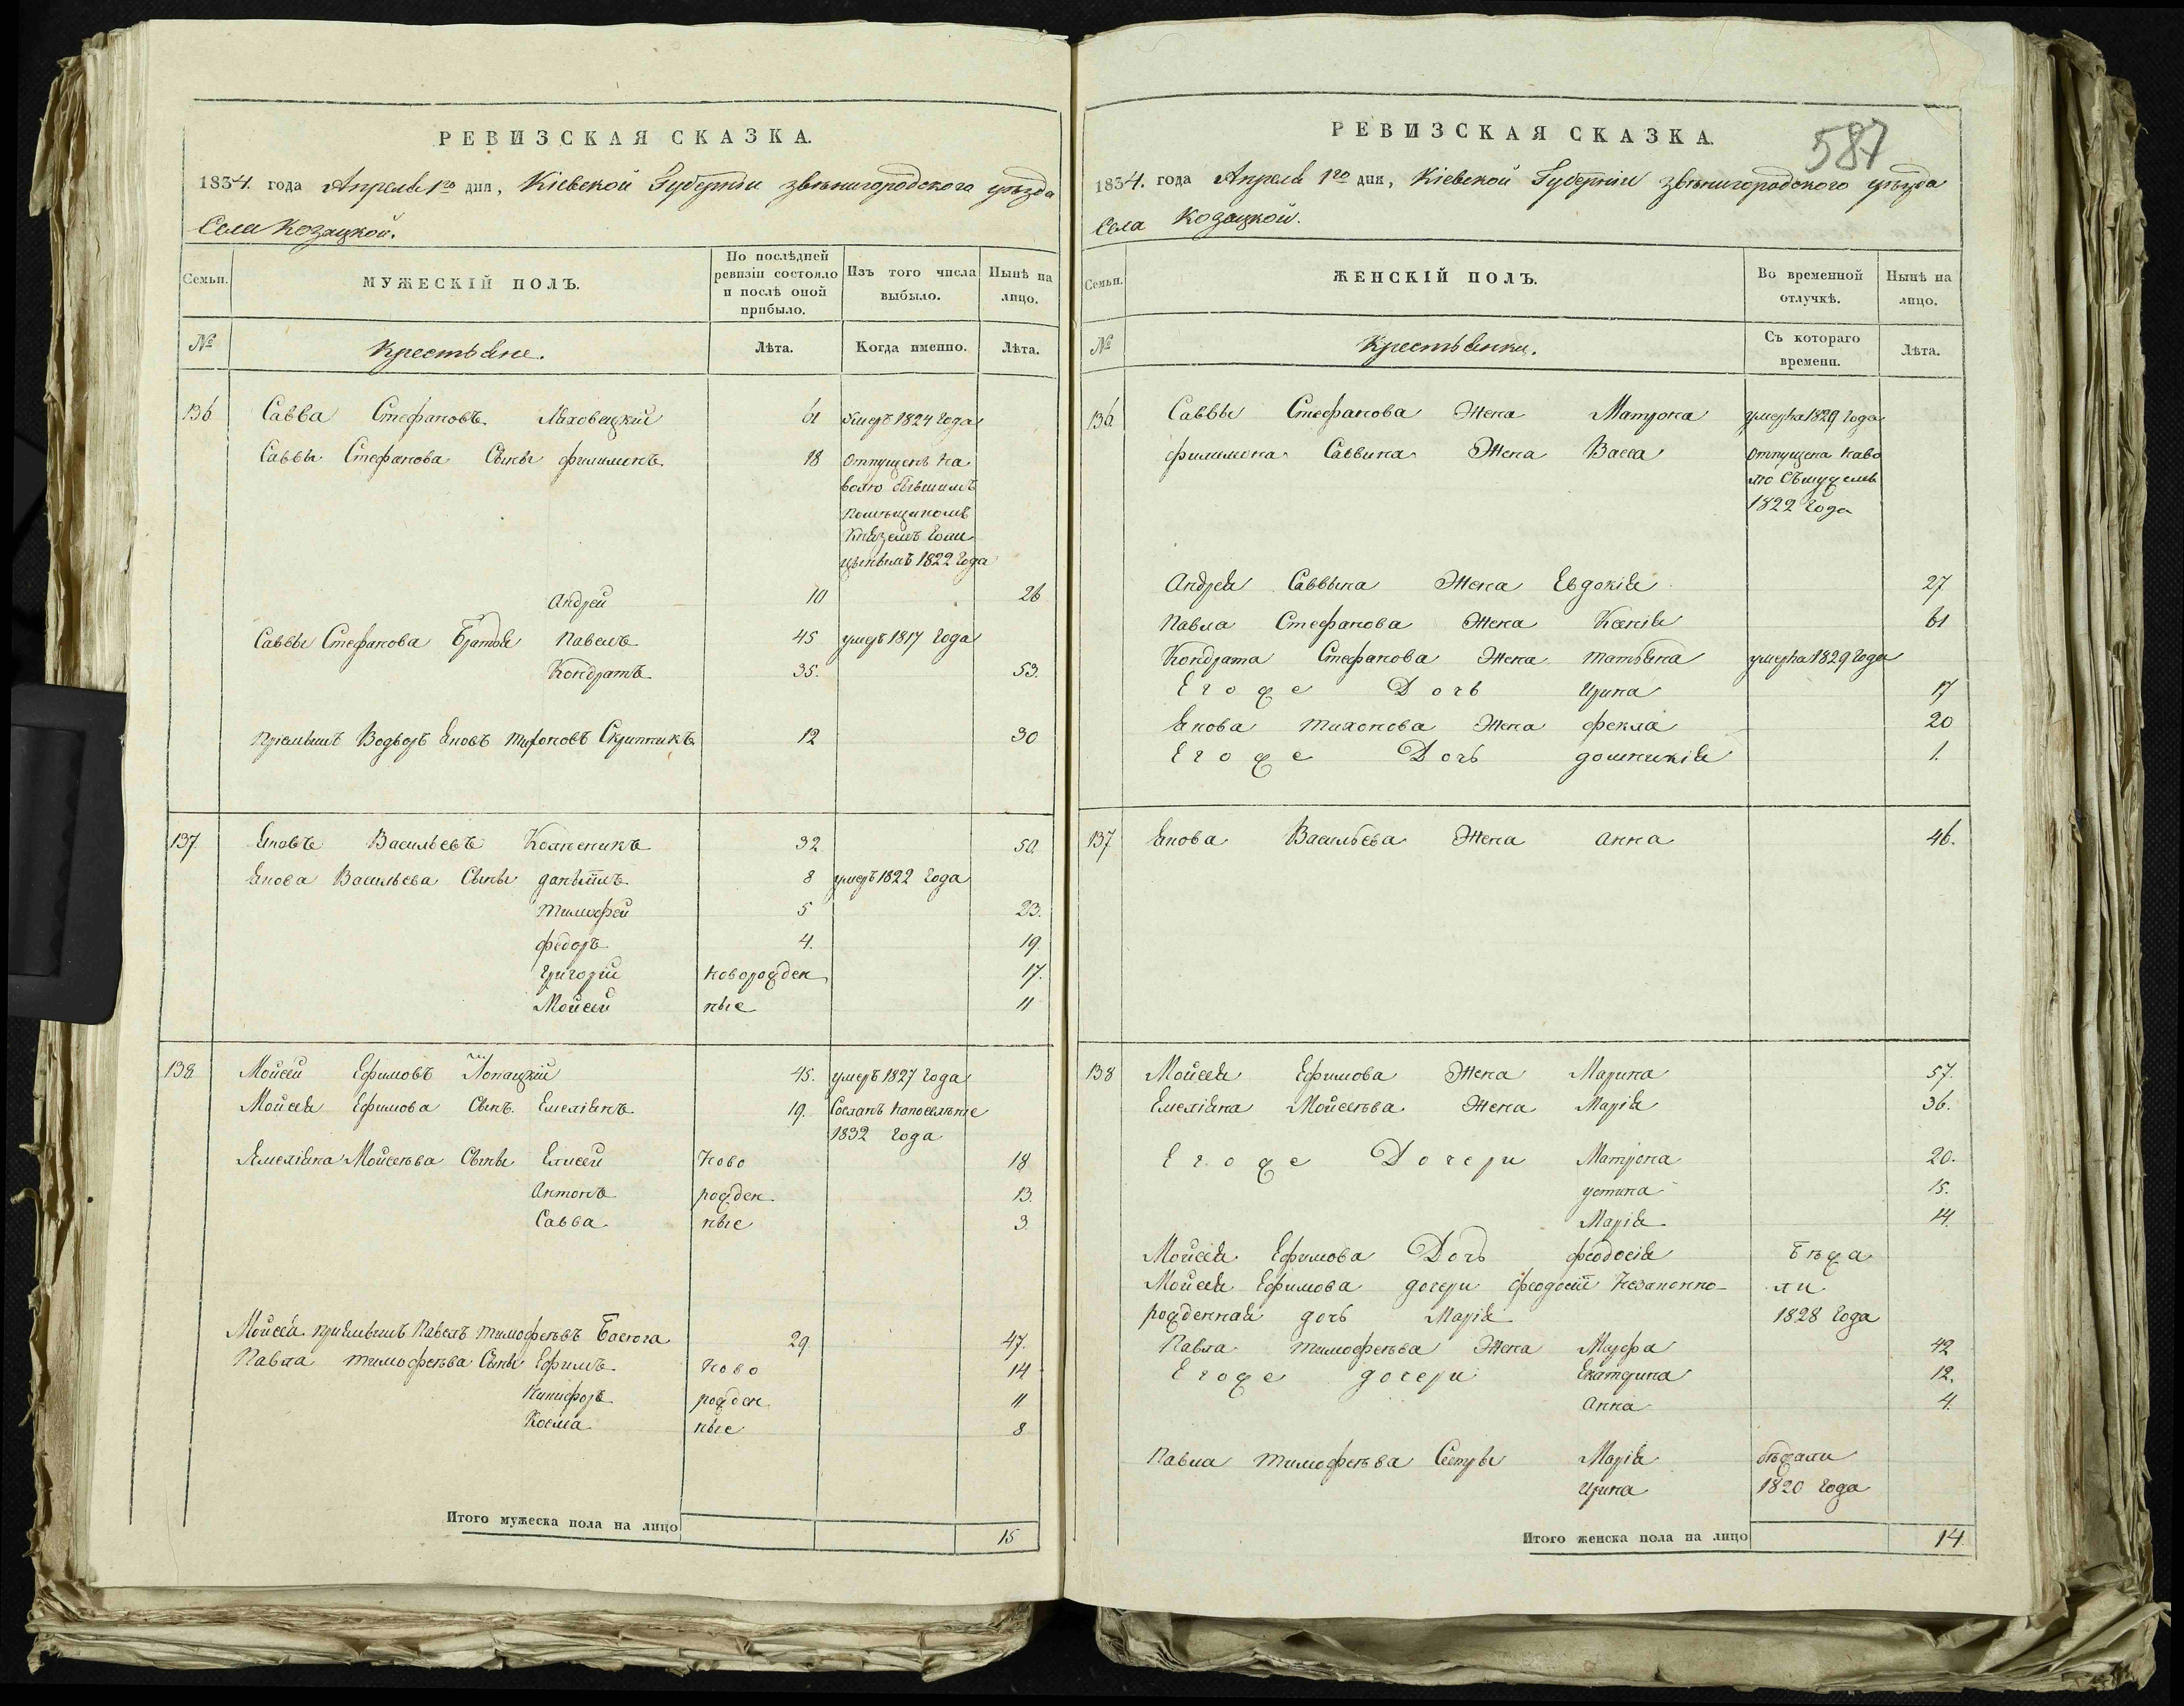 РЕВИЗСКАЯ СКАЗКА.
1834. года Апреля 1го дня, Кіевской Губерніи звѣнигородского уѣзда
Села Козацкой.
Семьи.
МУЖЕСКІЙ ПОЛЪ.
По послѣдней ревизіи состояло и послѣ оной прибыло.
Изъ того числа выбыло.
Нынѣ на лицо.
№
Крестьяне.
Лѣта.
Когда именно.
Лѣта.
136 Савва Стефановъ Маховецкій 61 умеръ 1824 года
Саввы Стефанова Сыны филимонъ 18 Отпущенъ на
волю бывшимъ
помѣщикомъ
Княземъ Голи
цынымъ 1822 года
Андрей 10 26
Саввы Стефанова Братья Павелъ 45 умеръ 1817 года
Кондратъ 35. 53.
пріемышъ Яковъ Тихоновъ Скрипникъ 12 30
137 Яковъ Васильевъ 32 50.
Якова Васильева Сыны данѣилъ 8 умеръ 1822 года
Тимофей 5 23.
федоръ 4. 19.
григорій новорожден 17.
Мойсей ные 11
138 Мойсей Ефимовъ Лопацкій 45. умеръ 1827 года
Мойсея Ефимова Сынъ Емеліянъ 19. Сосланъ напоселѣніе
1832 года
Ямеліяна Мойсеѣва Сыны Елисей Ново 18
Антонъ рожден 13.
Савва ные 3.
Мойсея приемышъ Павелъ тимофеѣвъ Басюга 29. 47.
Павла тимофеѣва Сыны Ефимъ Ново 14
Никифоръ рожден 11
Косма ные 8
Итого мужеска пола на лицо 15
РЕВИЗСКАЯ СКАЗКА.
587
1834. года Апреля 1го дня, Кіевской Губерніи звѣнигородского уѣзда
Села Козацкой.
Семьи.
ЖЕНСКІЙ ПОЛЪ.
Во временной отлучкѣ.
Нынѣ на лицо.
№
Крестьянки.
Съ котораго времени.
Лѣта.
136 Саввы Стефанова Жена Матрона умерла 1829 года
филимона Саввина Жена Васса Отпущена наво
лю Съмужемъ
1822 года
Андрея Саввына Жена Евдокія 27
Павла Стефанова Жена Ксенія 61
Кондрата Стефанова Жена татьяна умерла 1829 года
Егоже Дочь Ирина 17
Якова тихонова Жена фекла 20
Егоже Дочь домникія 1.
137 Якова Васильева Жена анна 46.
138 Мойсея Ефимова Жена Марина 57.
Емеліяна Мойсеѣва Жена Марія 36.
Егоже Дочери Матрона 20.
устина 15.
Марія 14.
Мойсея Ефимова Дочь феодосія бѣжа
Мойсея Ефимова дочери феодосіи Незаконно- ли
рожденная дочь Марія 1828 года
Павла тимофеѣва Жена Марфа 42
Егоже дочери Екатерина 12.
анна 4.
Павла тимофеѣва Сестры Марія бѣжали
Ирина 1820 года
Итого женска пола на лицо 14.